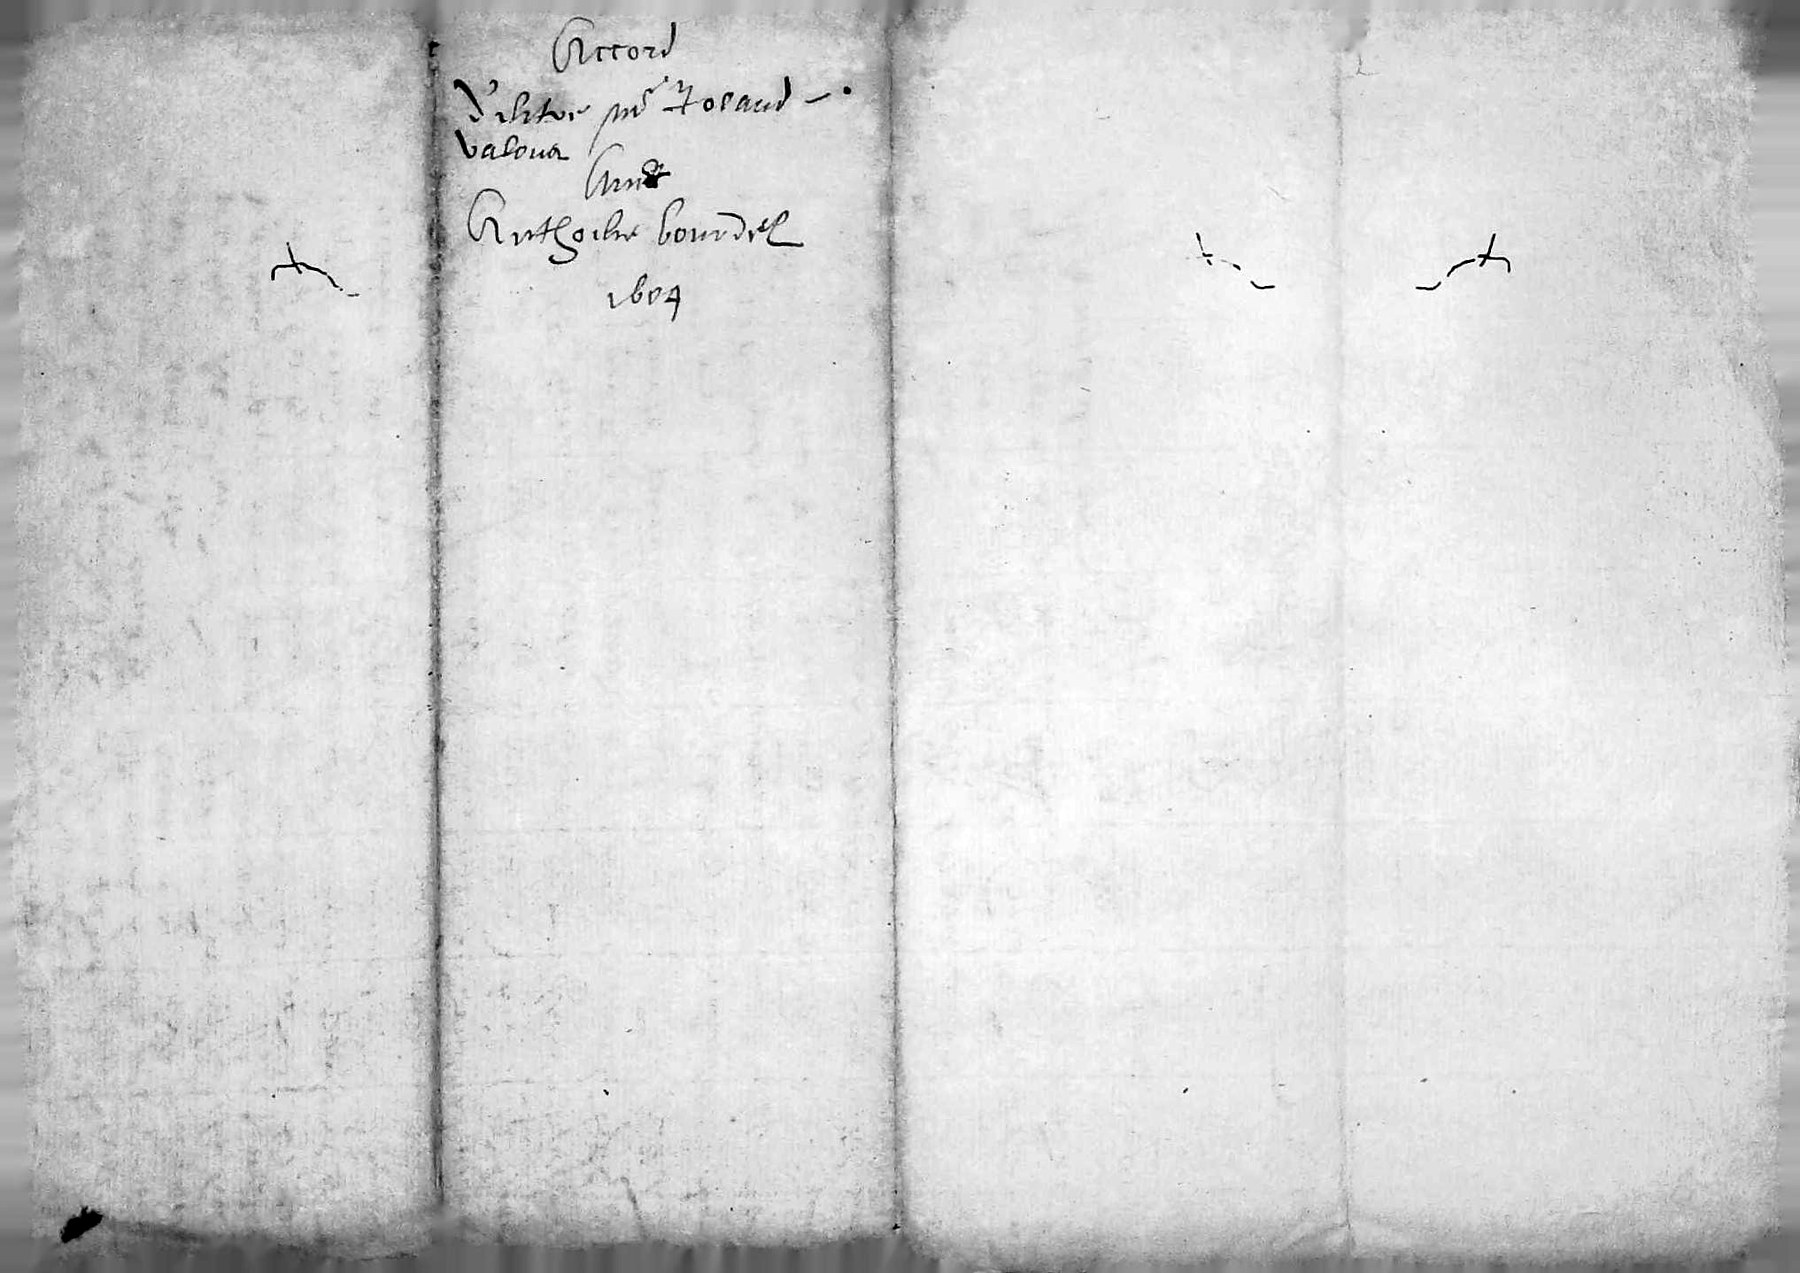 Accord
D'entre mr Roland
Valoux
Avec
Anthoine bourdel
1604